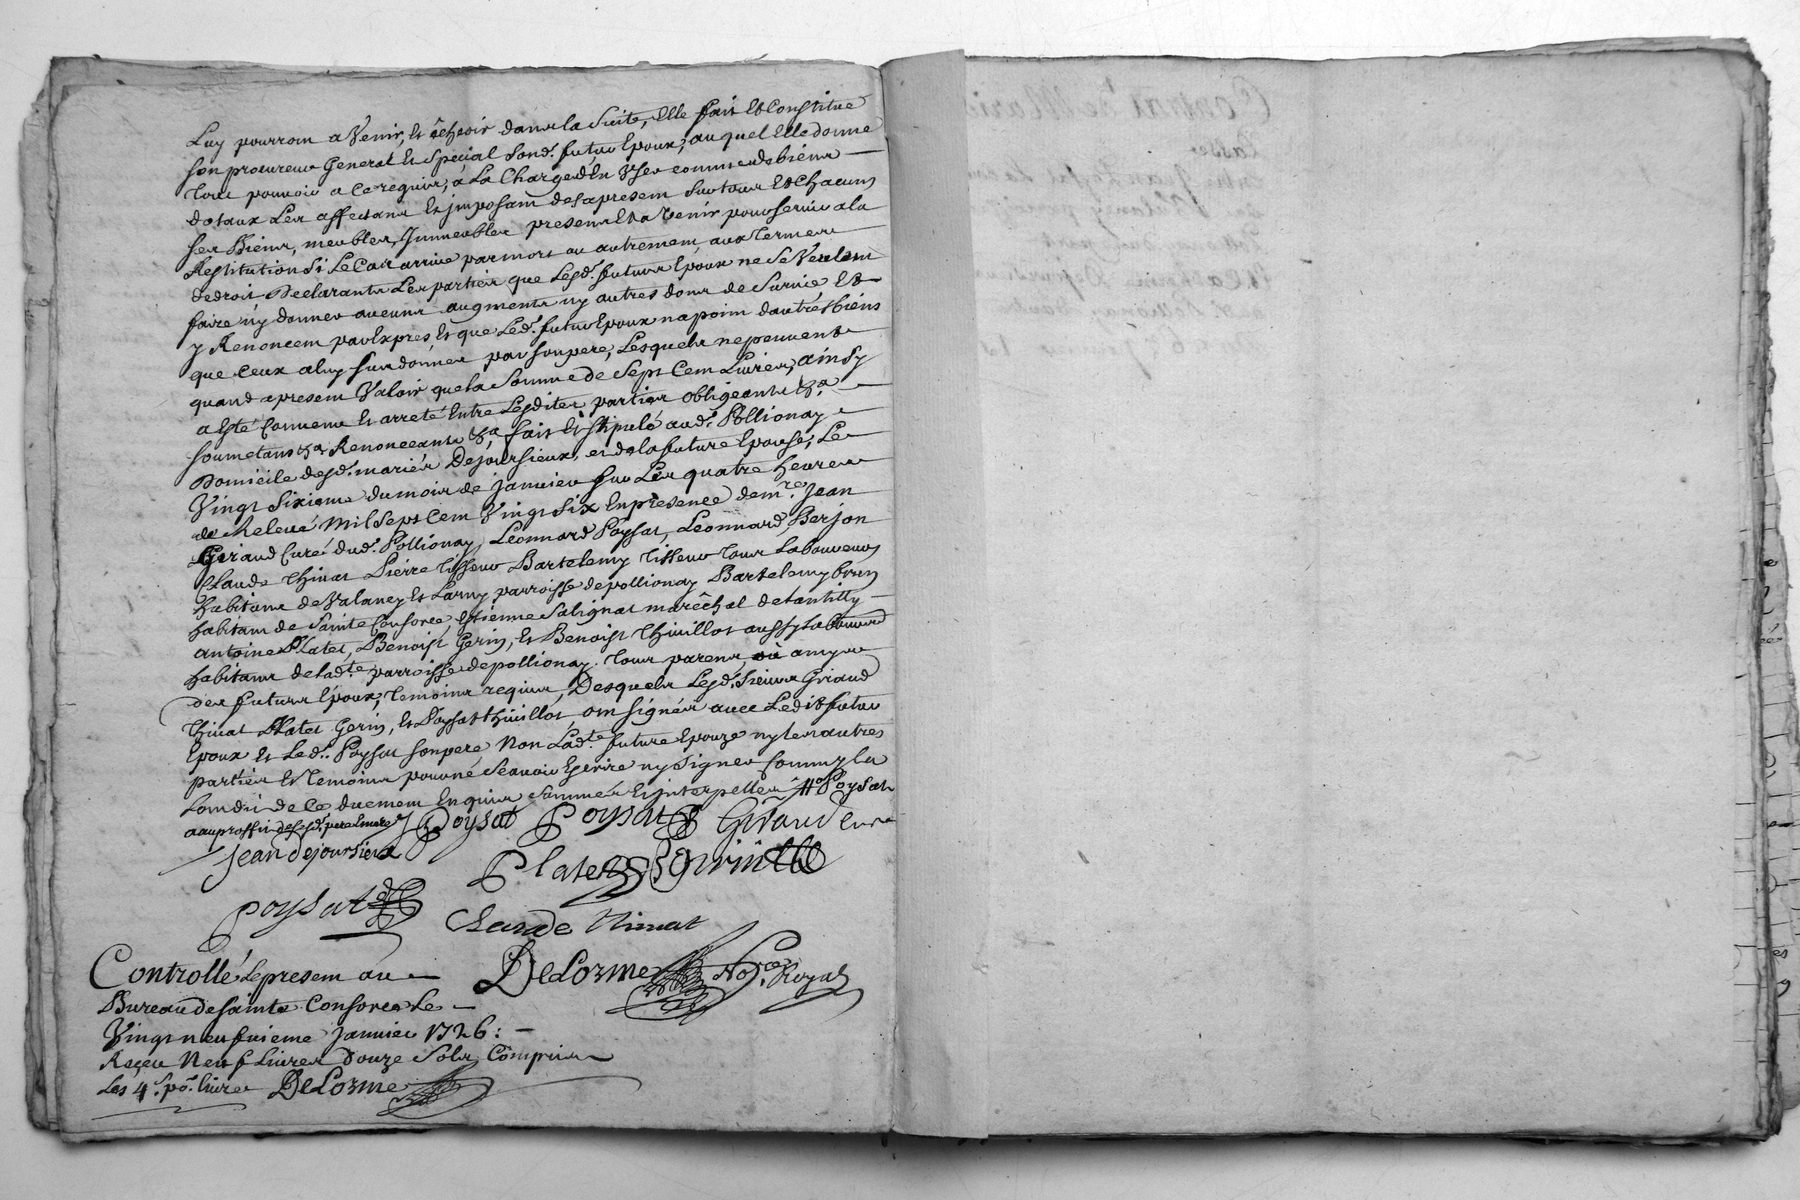 Luy pourront a Venir, et echeoir dans la Suite, Elle fait et Constitue
son procureur General et Special Sond. futur Epoux, auquel Elle donne
tout pouvoir a ce requis, a La Charge d'En User comme de biens
dotaux Les affectant et jmposant desapresent sur tous Et Chacuns
ses Biens, meubles, Jmmeubles presents Et a Venir pour servir a la
Restitution Si Le Cas arrive par mort ou autrement, aux termes
de droit Declarants Les parties que Lesd. futurs Epoux ne Se Veulent
faire n'y donner aucuns augments ny autres dons de Survie, Et
y Renoncent par Exprés, et que Led. futur Epoux na point dautres biens
que ceux a luy Sus donnés par Son pere, Lesquels ne peuvent
quand a present Valoir que la Somme de Sept Cent Livres, ainsy
a Esté Convenu et arreté Entre Lesdites parties obligeants &a
soumetants &a Renonceants &a fait Et Stipulé aud. Pollionay
Domicile desd. mariés Dejoursieux, et de la future Epouse, Le
Vingt Sixieme du mois de janvier Sur Les quatre heures
de Relevé Mil Sept Cent Vingt Six En presence de mre. Jean
Giraud Curé dud. Pollionay, Leonnard Poysat, Leonnard Berjon
Claude Thivat Pierre Tisseur Bartelemy Tisseur tous Laboureurs
habitans de Valancy et Larny parroisse de pollionay Bartelemy brun
habitant de Sainte Consorce, Estienne Salignat maréchal de Lantilly
antoine Platet, Benoist Gerin, et Benoist Thivillot aussy Laboureurs
habitans de lad.te parroisse de pollionay. tous parens ou amys
des futurs Epoux, temoins requis, Desquels Lesd. Sieurs Giraud
Thivat Platet Gerin, et Poysat thivillot, ont signés avec Ledit futur
Epoux et Led. Poysat son pere Non Lad.te future Epouze ny les autres
parties Et temoins pour né Scavoir Ecrire ny signer comme ils
L'ont dit de Ce duement Enquis sommés Et jnterpellés Poysat
Poysat Poysat Giraud Curé
Jean dejoursieux
Platet Gerin
Poysat
Claude Thivat
Controllé Le present au DeLorme No.re Royal
Bureau de Sainte Consorce Le
Vingt neufvieme Janvier 1726:
Reçeu Neuf Livres Douze Sols Compris
Les 4 s. po. livre DeLorme